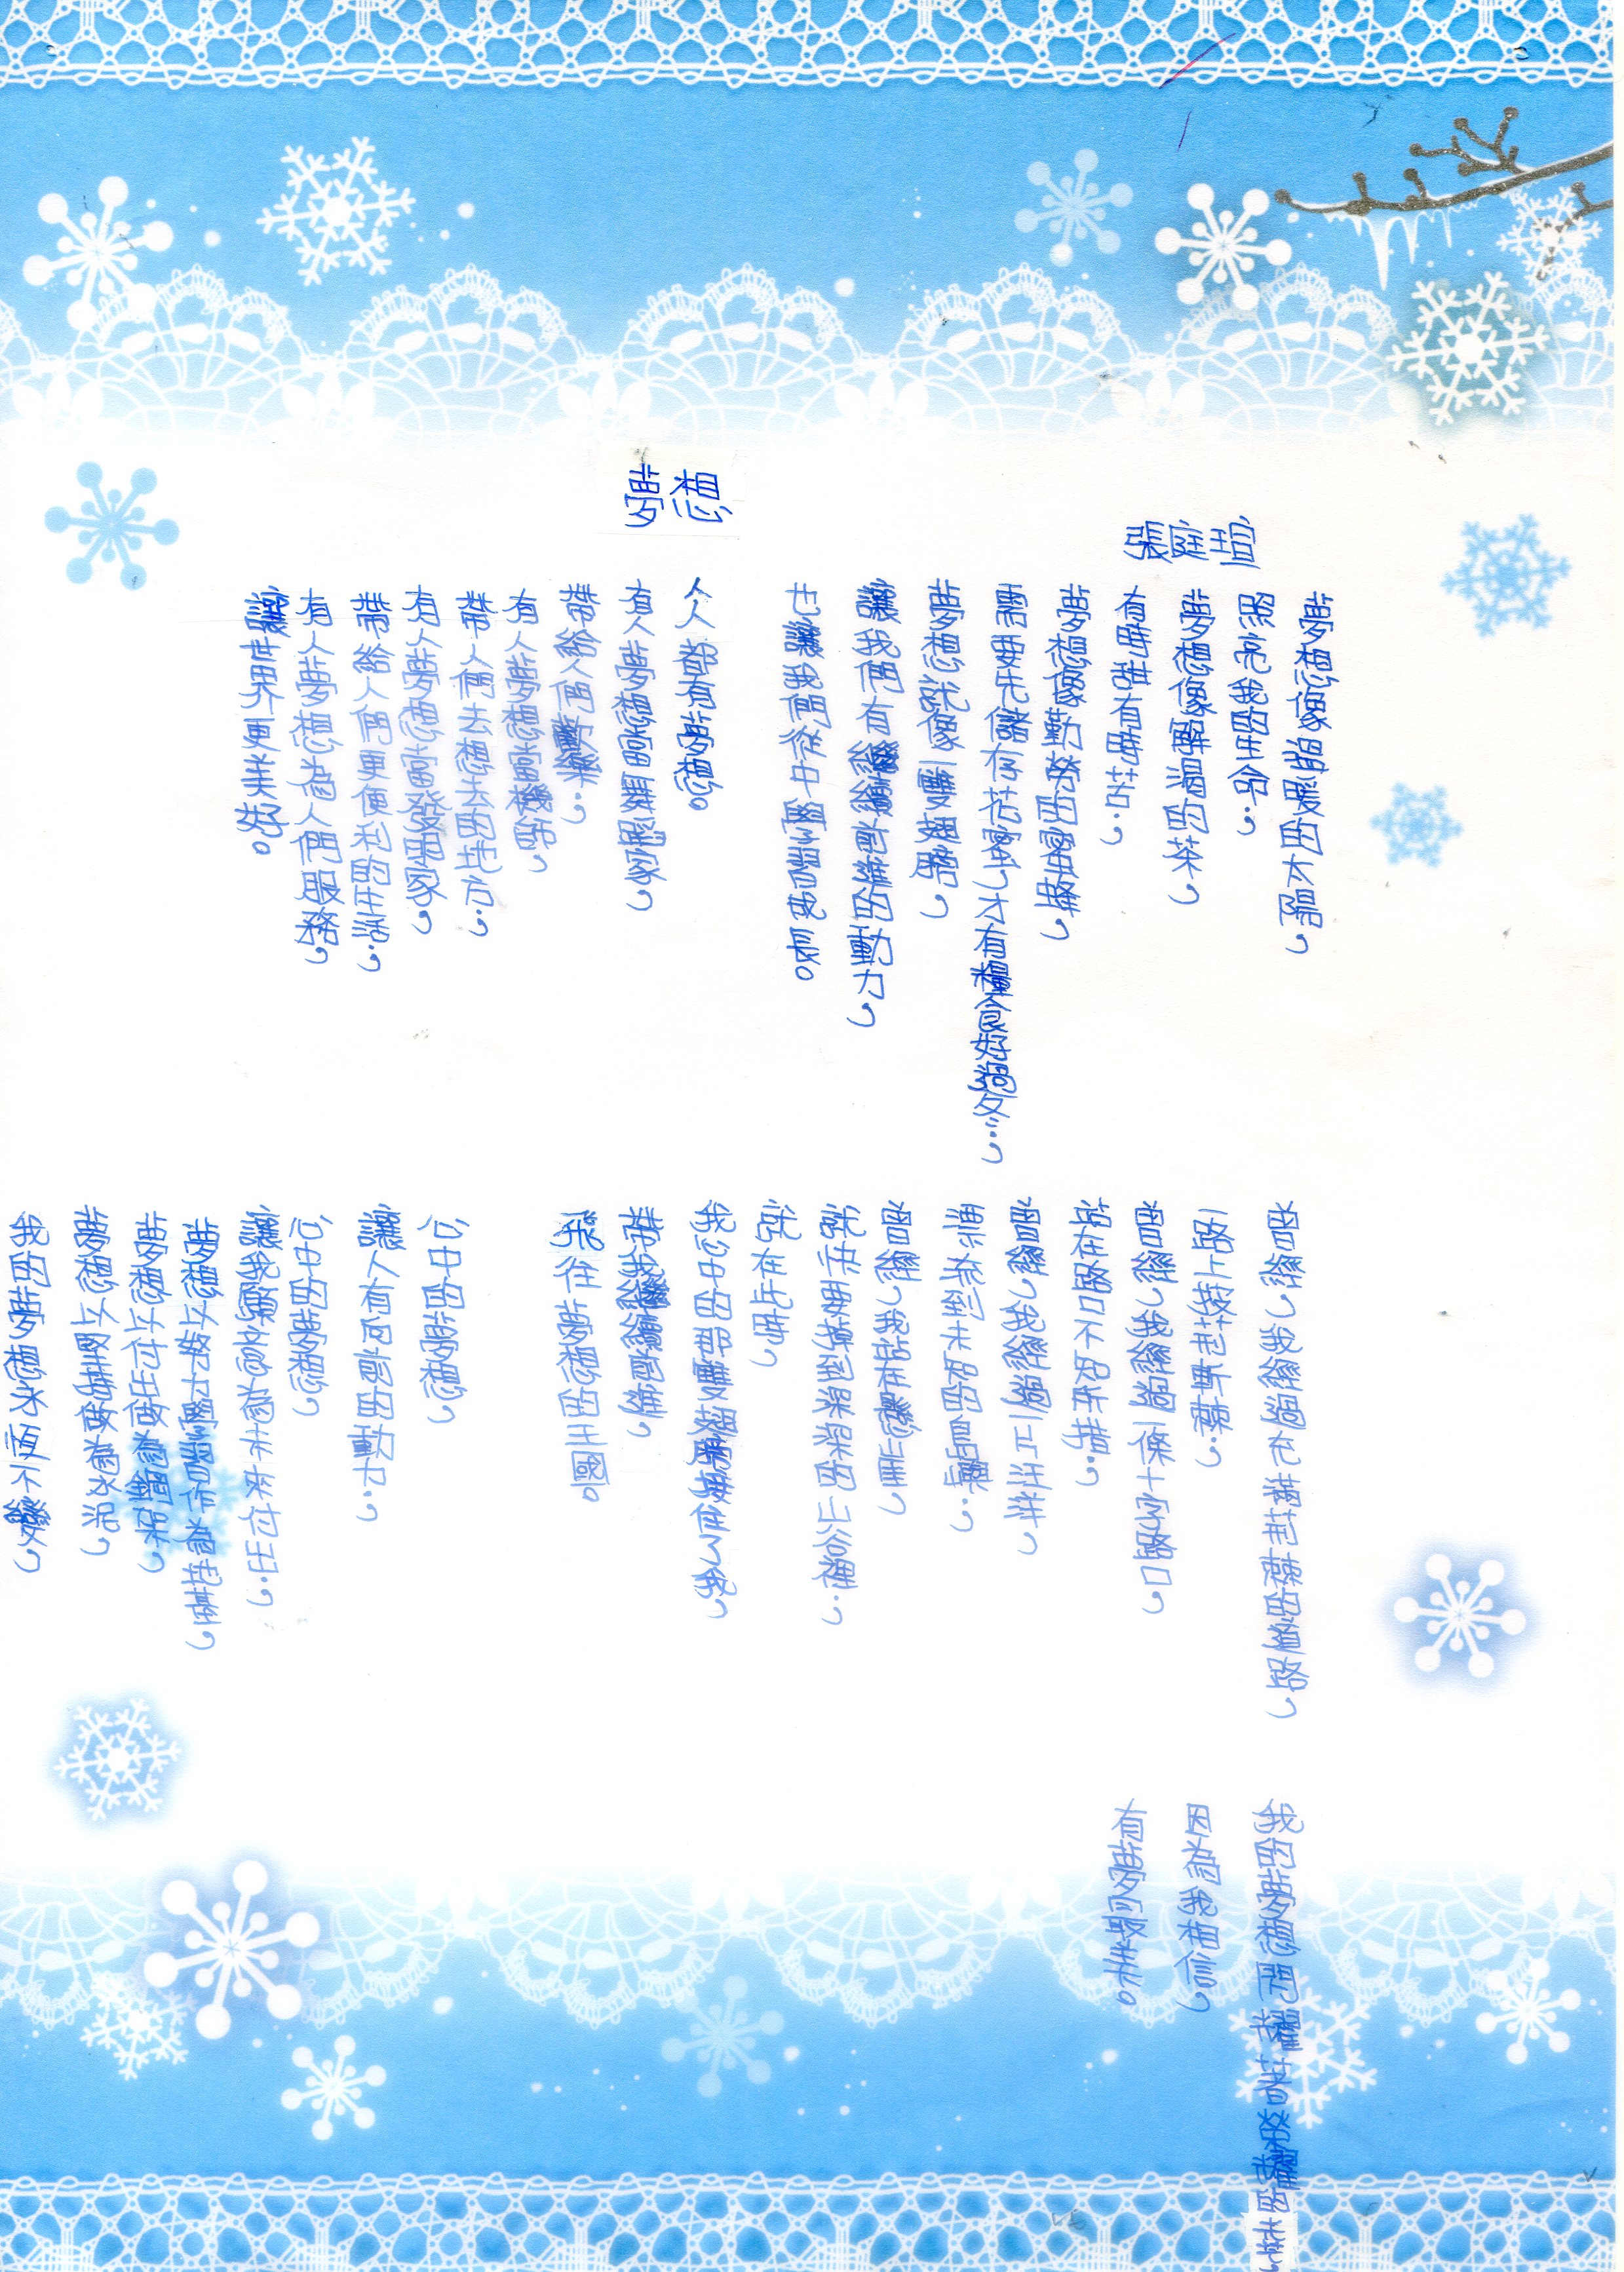 夢想
張庭瑄
夢想像溫暖的太陽，
照亮我的生命；
夢想像解渴的茶，
有時甜有時苦；
夢想像勤勞的蜜蜂，
需要先儲存花蜜，才有糧食好過冬…，
夢想就像一雙翅膀，
讓我們有繼續前進的動力，
也讓我們從中學習成長。
人人都有夢想。
有人夢想當舞蹈家，
帶給人們歡樂；
有人夢想當機師，
帶人們去想去的地方；
有人夢想當發明家，
帶給人們更便利的生活；
有人夢想為人們服務，
讓世界更美好。
曾經，我經過充滿荊棘的道路，
一路上披荊斬棘；
曾經，我經過一條十字路口，
站在路口不知所措；
曾經，我經過一片汪洋，
漂流到未知的島嶼；
曾經，我站在懸崖上，
就快要掉到深深的山谷裡；
就在此時，
我心中的那雙翅膀接住了我，
帶我繼續前進，
飛往夢想的王國。
心中的夢想，
讓人有向前的動力；
心中的夢想，
讓我願意為未來付出；
夢想以努力學習作為基礎，
夢想以付出成為鋼架，
夢想以堅持成為水泥，
我的夢想永恆不變，
我的夢想閃耀著榮耀的光，
因為我相信，
有夢最美。